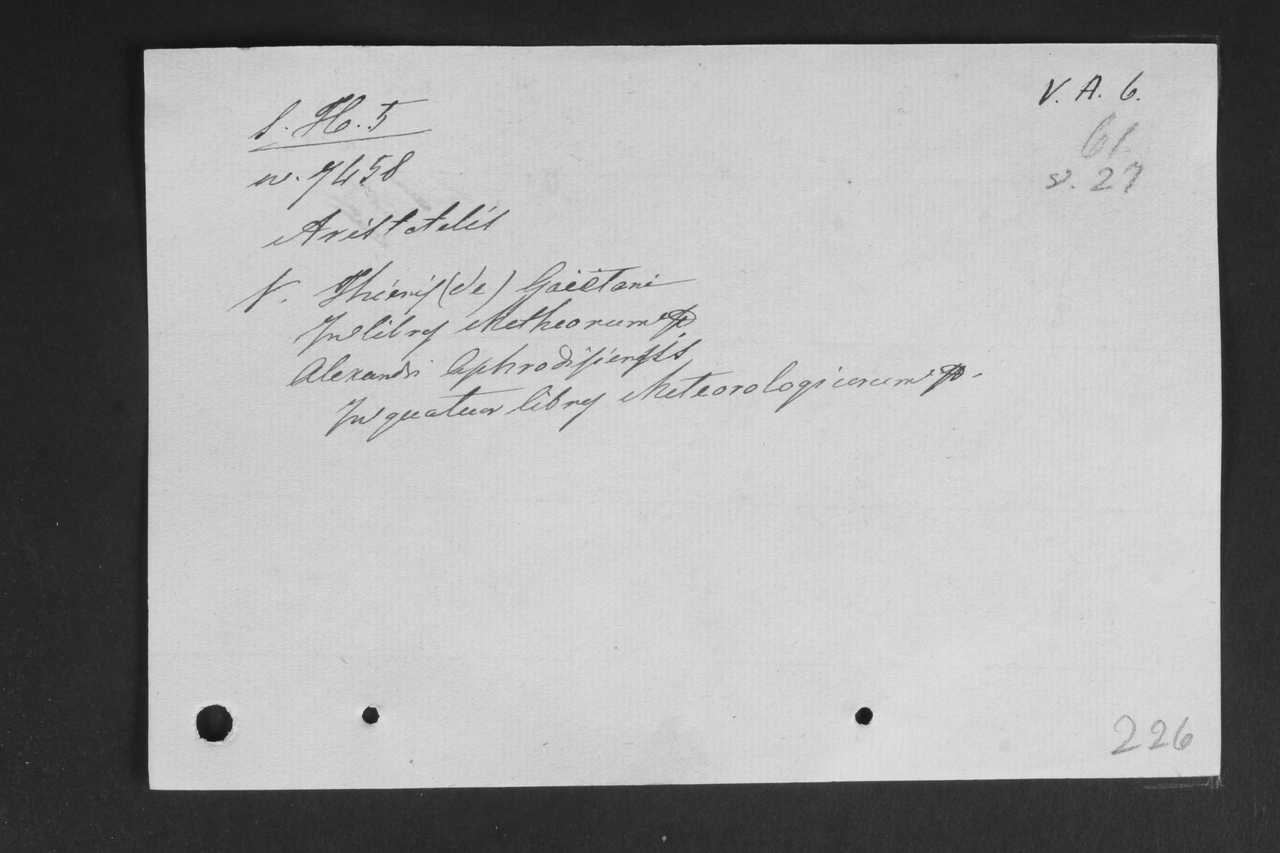 S. H. 5
V. A. 6.
61.
n. 7458
s. 27
Aristotelis
V. Thienis (de) Gaietani
In libros Metheororum
Alexandri Aphrodisiensis
In quatuor libros Meteorologicorum
226